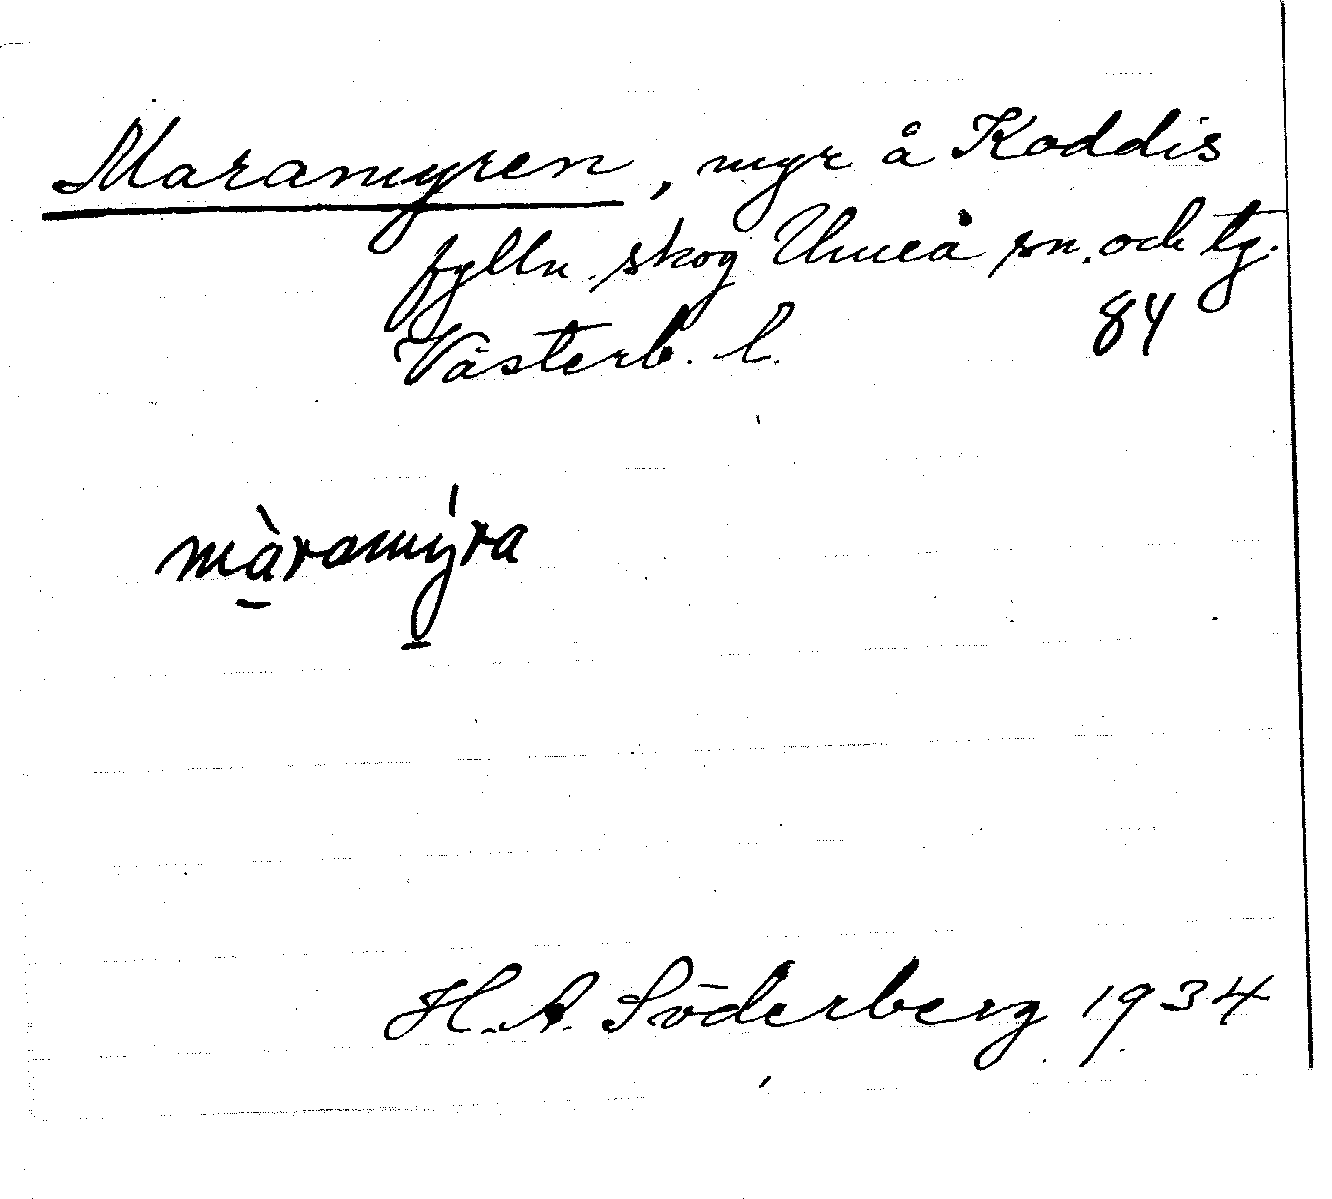 Maramyren, myr å Koddis
fylln. skog Umeå sn. och tg.
Västerb. l. 84
màramýra
H. A. Söderberg 1934